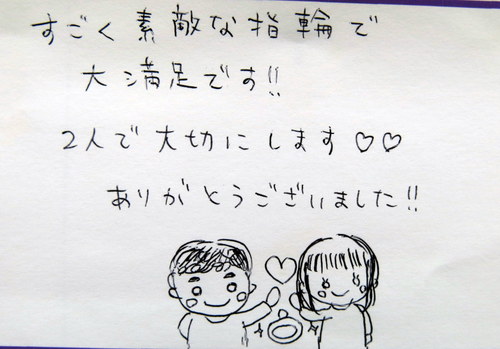 すごく素敵な指輪で
大満足です!!
2人で大切にします♡♡
ありがとうございました!!